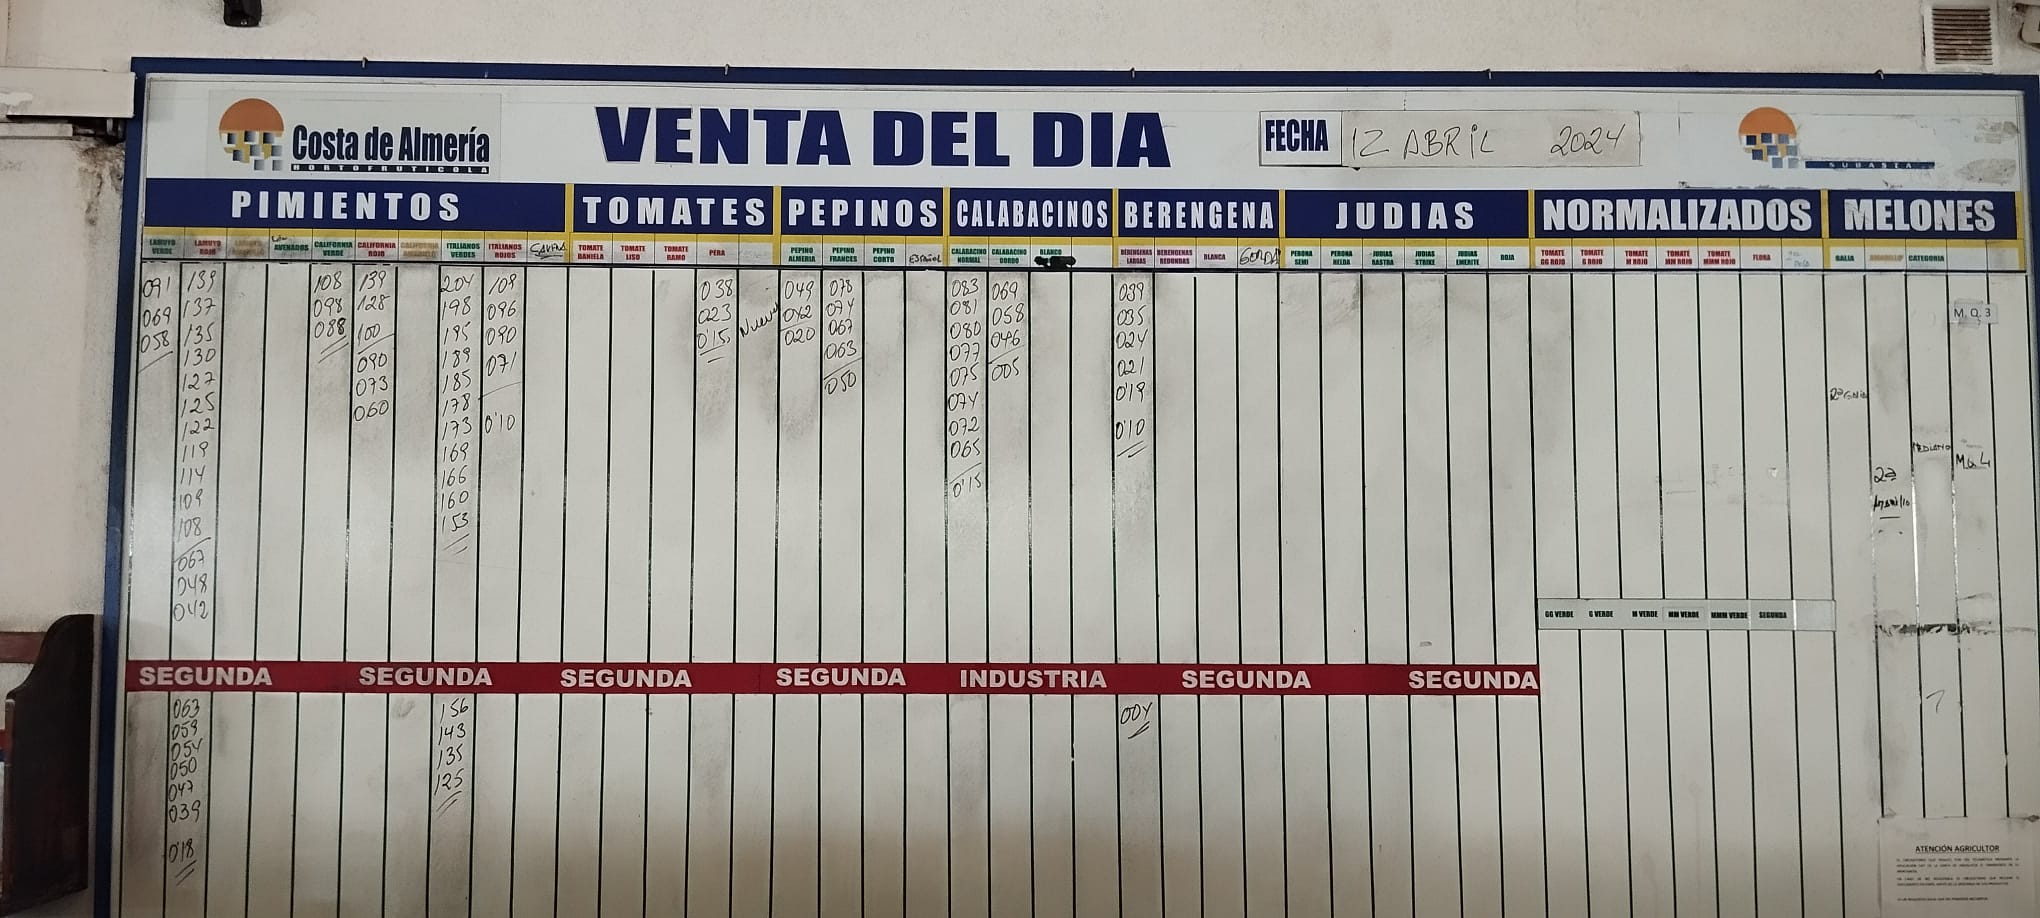 Costa de Almería
HORTOFRUTICOLA
VENTA DEL DIA
FECHA 12 ABRIL 2024
SUBASTA
PIMIENTOS TOMATES PEPINOS CALABACINOS BERENGENA JUDIAS NORMALIZADOS MELONES
LAMUYO VERDE
LAMUYO ROJO
AVENADOS
CALIFORNIA VERDE
CALIFORNIA ROJO
CALIFORNIA AMARILLO
ITALIANOS VERDES
ITALIANOS ROJOS
TOMATE DANIELA
TOMATE LISO
TOMATE RAMO
PERA
PEPINO ALMERIA
PEPINO FRANCES
PEPINO CORTO
ESPAÑOL
CALABACINO NORMAL
CALABACINO GORDO
BLANCO
BERENGENAS LARGAS
BERENGENAS REDONDAS
BLANCA
GORDA
PERONA SEMI
PERONA HELDA
JUDIAS RASTRA
JUDIAS STRIKE
JUDIAS EMERITE
ROJA
TOMATE GG ROJO
TOMATE G ROJO
TOMATE M ROJO
TOMATE MM ROJO
TOMATE MMM ROJO
FLORA
GALIA
AMARILLO
CATEGORIA
091
069
058
139
137
135
130
127
125
122
119
114
109
108
067
048
042
108
098
088
139
128
100
090
073
060
204
198
195
189
185
178
173
169
166
160
153
109
096
090
071
0'10
038
023
0'15
Nuevo
049
042
020
078
074
067
063
050
083
081
080
077
075
074
072
065
0'15
069
058
046
005
039
035
024
021
0'19
0'10
M.Q.3
M.Q.4
2ª
Amarillo
GG VERDE
G VERDE
M VERDE
MM VERDE
MMM VERDE
SEGUNDA
SEGUNDA SEGUNDA SEGUNDA SEGUNDA INDUSTRIA SEGUNDA SEGUNDA
063
059
054
050
047
039
0'18
156
143
135
125
004
ATENCIÓN AGRICULTOR